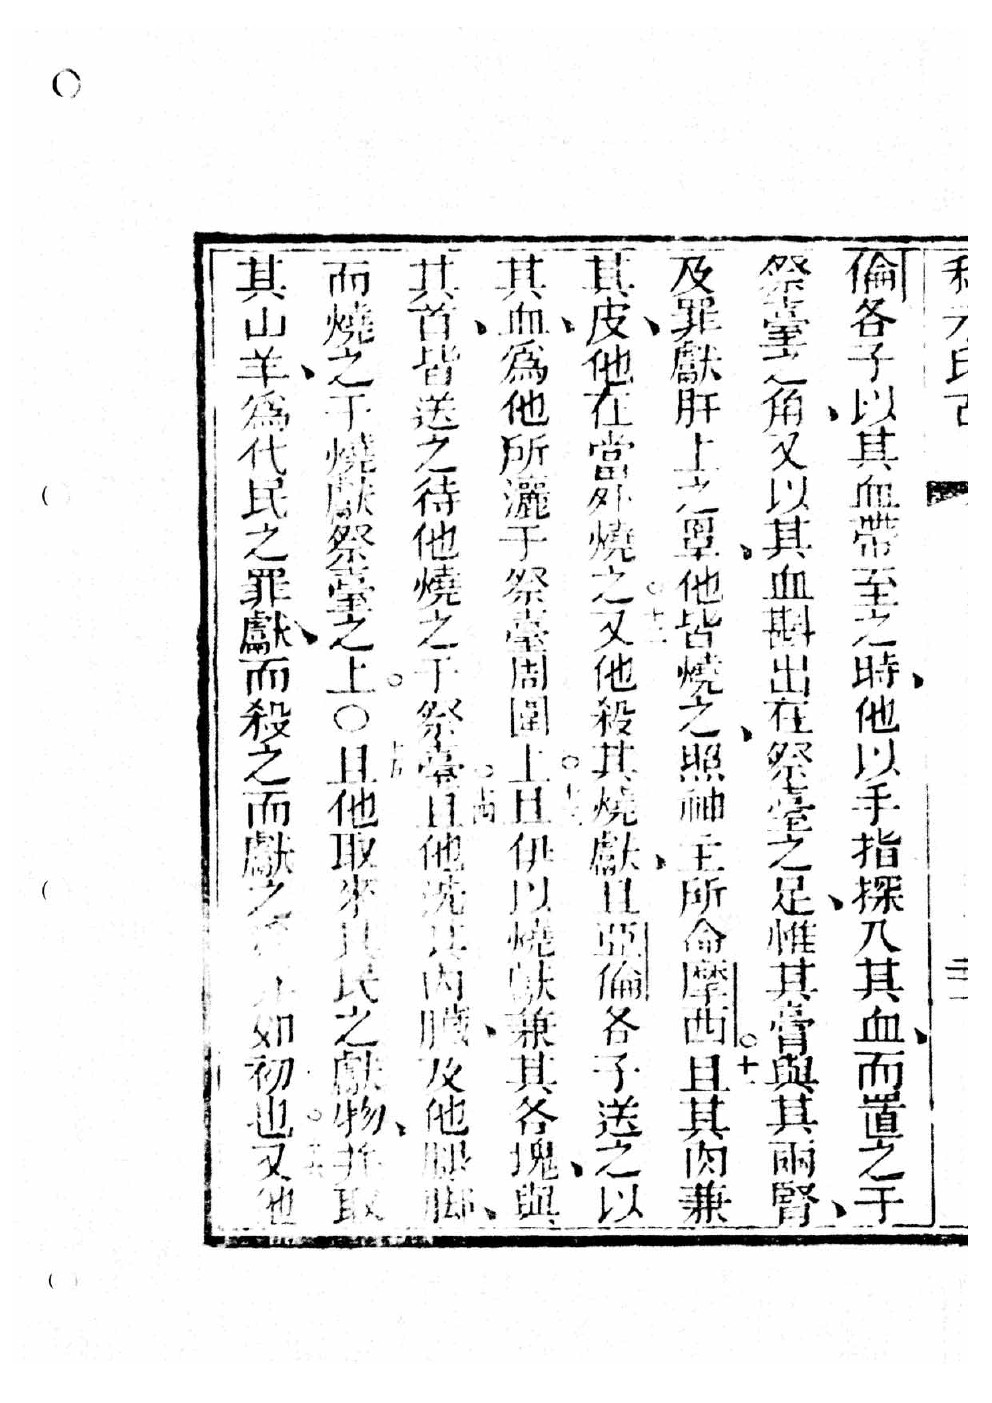 倫各子以其血帶至之時、他以手指探入其血、而置之于
祭臺之角、又以其血斟出在祭臺之足、惟其膏與其兩腎、
及罪獻肝上之罩、他皆燒之、照神主所命摩西。○十一且其肉兼
其皮、他在當外燒之。○十二又他殺其燒獻、且亞倫各子送之以
其血、為他所灑于祭臺周圍上。○十三且伊以燒獻兼其各塊、與
其首、皆送之待他燒之于祭臺。○十四且他洗其內臟、及他腿脚、
而燒之于燒獻祭臺之上。○十五○且他取來其民之獻物、並取
其山羊、為代民之罪獻、而殺之而獻之 如初也。又他